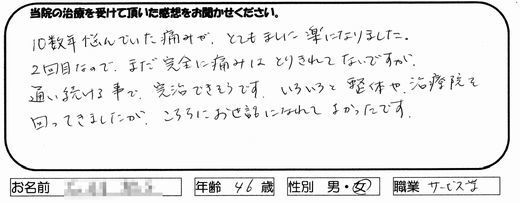 当院の治療を受けて頂いた感想をお聞かせください。
10数年悩んでいた痛みが、とてもましに楽になりました。
2回目なので、まだ完全に痛みはとりきれてないですが、
通い続ける事で、完治できそうです。いろいろと整体や、治療院を
回ってきましたが、こちらにお世話になれてよかったです。
お名前 年齢 46 歳 性別 男・女 職業 サービス業